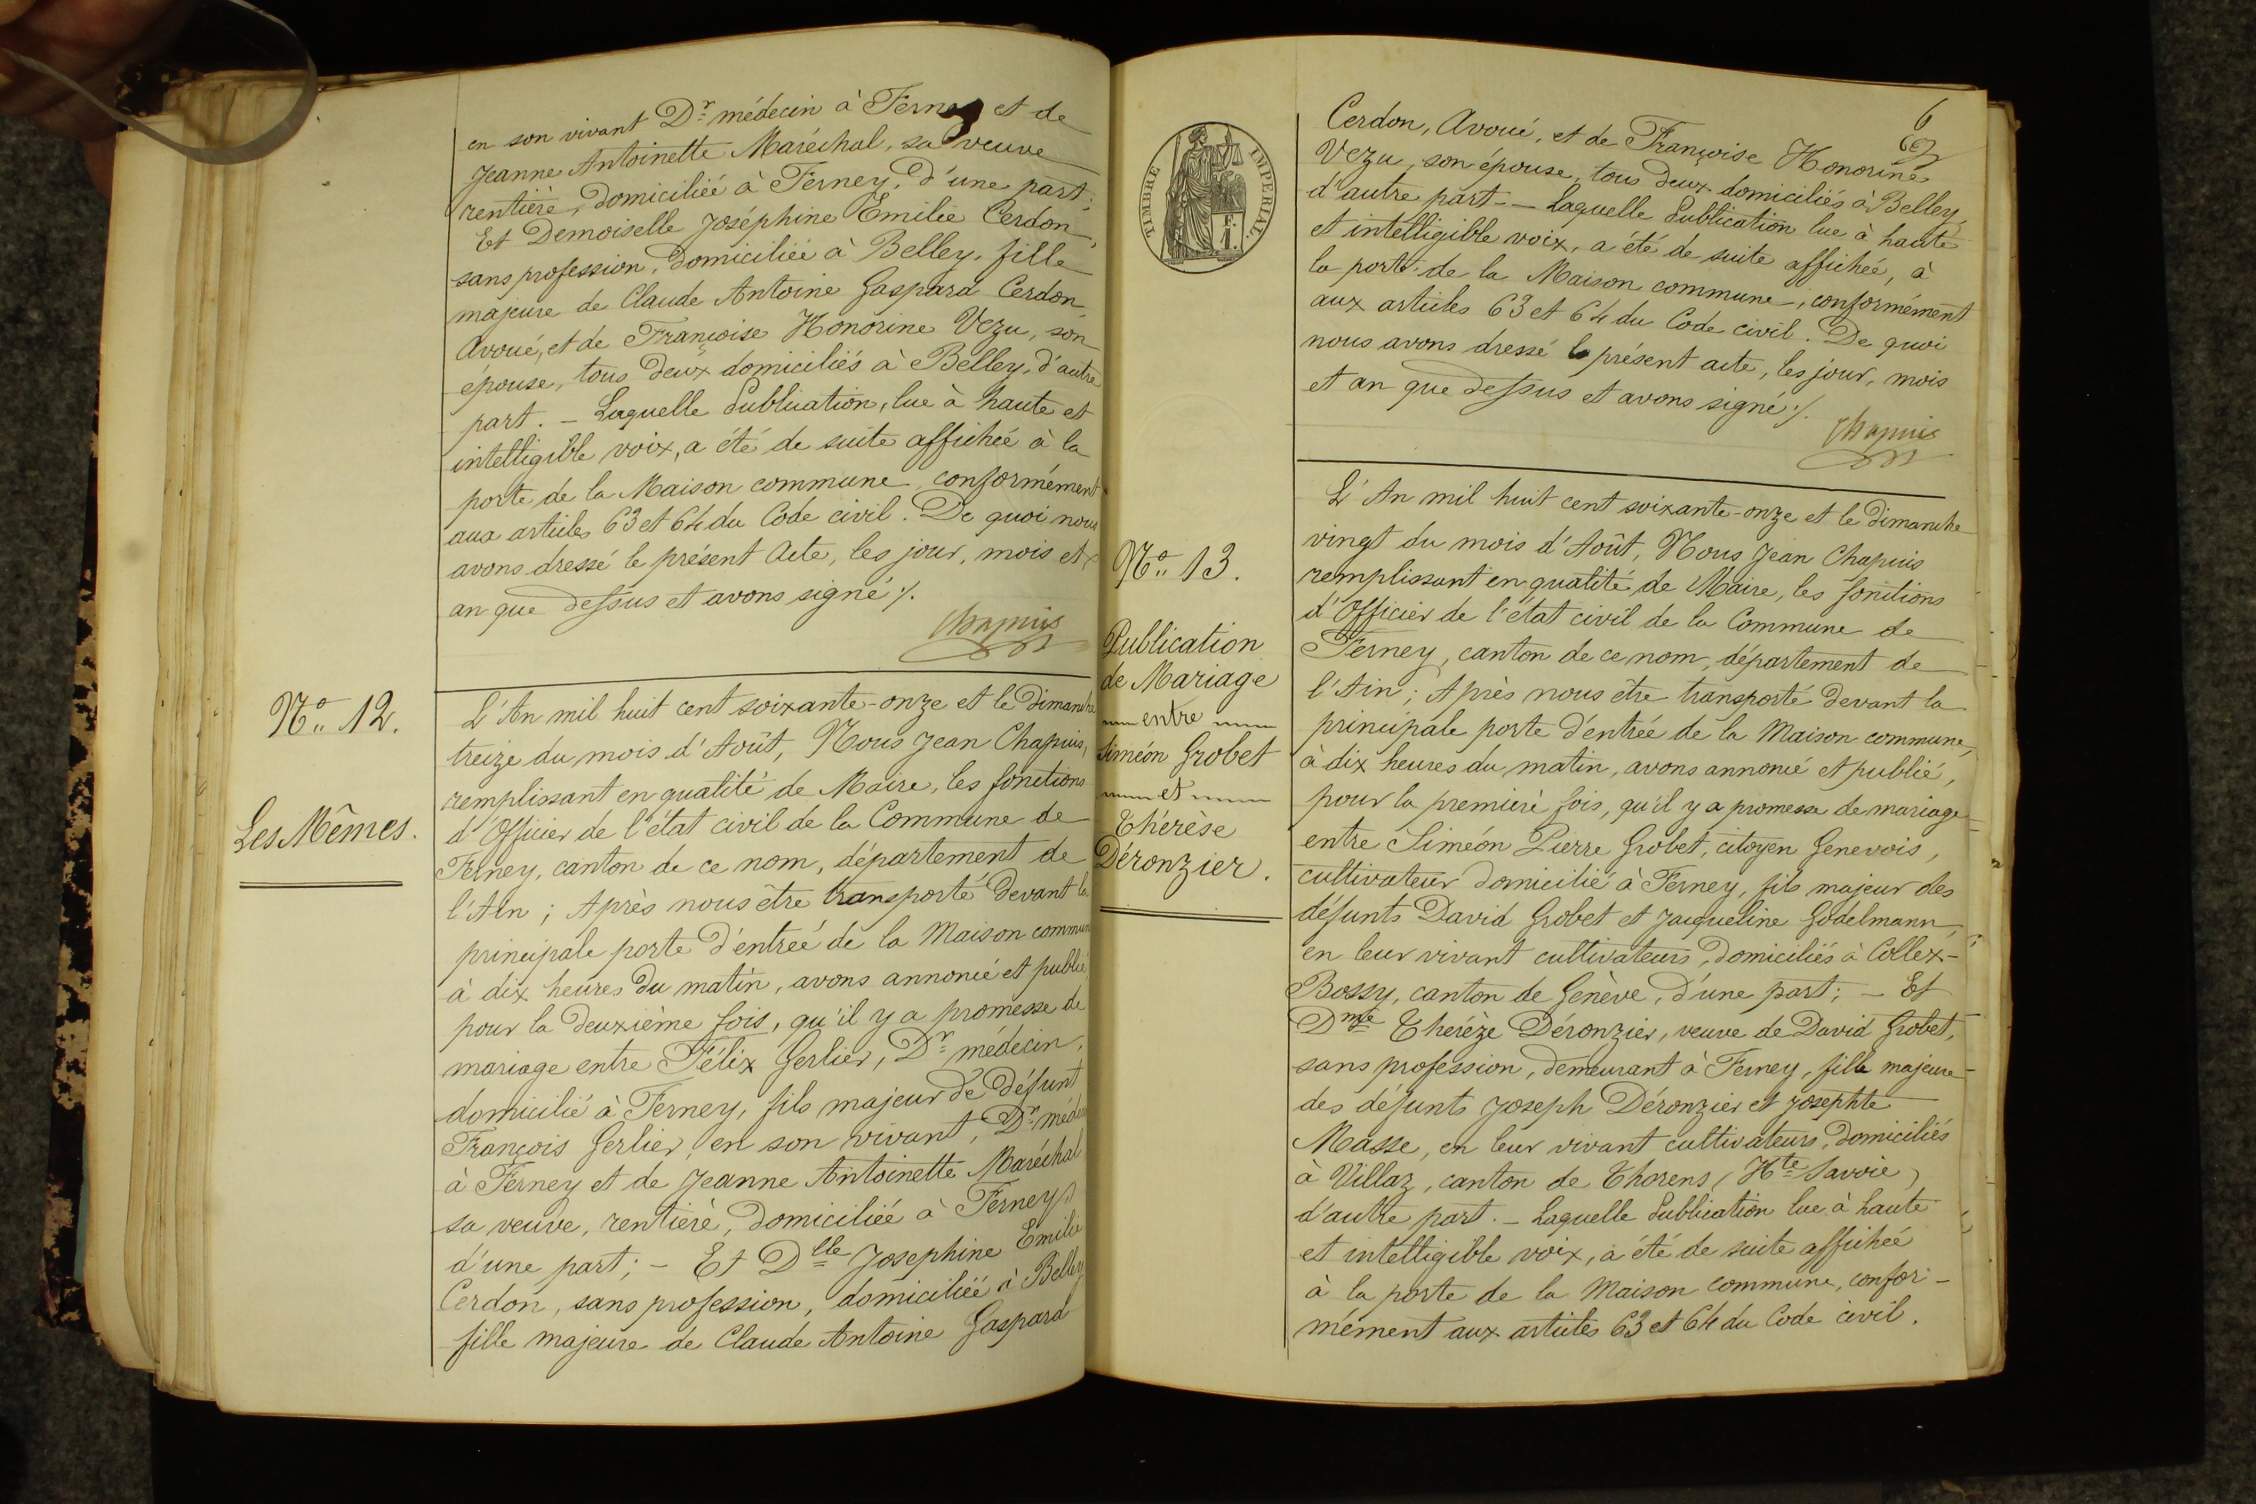 en son vivant Dr médecin à Ferney et de
Jeanne Antoinette Maréchal, sa veuve
rentière, domiciliée à Ferney, d'une part;
Et Demoiselle Joséphine Emilie Cerdon,
sans profession, domiciliée à Belley, fille
majeure de Claude Antoine Gaspard Cerdon
Avoué, et de Françoise Honorine Vezu, son
épouse, tous deux domiciliés à Belley, d'autre
part. — Laquelle Publication, lue à haute et
intelligible voix, a été de suite affichée à la
porte de la Maison commune, conformément
aux articles 63 et 64 du Code civil. De quoi nous
avons dressé le présent Acte, les jour, mois et
an que dessus et avons signé ./.
Chapuis
No 12.
Les Mêmes.
L'An mil huit cent soixante-onze et le Dimanche
treize du mois d'Août, Nous Jean Chapuis,
remplissant en qualité de Maire, les fonctions
d'Officier de l'état civil de la Commune de
Ferney, canton de ce nom, département de
l'Ain ; Après nous être transporté devant la
principale porte d'entrée de la Maison commune
à dix heures du matin, avons annoncé et publié
pour la deuxième fois, qu'il y a promesse de
mariage entre Félix Gerlier, Dr médecin,
domicilié à Ferney, fils majeur de défunt
François Gerlier, en son vivant, Dr médecin
à Ferney et de Jeanne Antoinette Maréchal
sa veuve, rentière, domiciliée à Ferney,
d'une part; — Et Dlle Josephine Emilie
Cerdon, sans profession, domiciliée à Belley
fille majeure de Claude Antoine Gaspard
6
TIMBRE IMPERIAL
1 F.
Cerdon, Avoué, et de Françoise Honorine
Vezu, son épouse, tous deux domiciliés à Belley,
d'autre part. — Laquelle Publication lue à haute
et intelligible voix, a été de suite affichée, à
la porte de la Maison commune, conformément
aux articles 63 et 64 du Code civil. De quoi
nous avons dressé le présent acte, les jour, mois
et an que dessus et avons signé ./.
Chapuis
No 13.
Publication
de Mariage
entre
Siméon Grobet
et
Thérèse
Déronzier.
L'An mil huit cent soixante-onze et le dimanche
vingt du mois d'Août, Nous Jean Chapuis
remplissant en qualité de Maire, les fonctions
d'Officier de l'état civil de la Commune de
Ferney, canton de ce nom, département de
l'Ain ; Après nous être transporté devant la
principale porte d'entrée de la Maison commune,
à dix heures du matin, avons annoncé et publié,
pour la première fois, qu'il y a promesse de mariage
entre Siméon Pierre Grobet, citoyen Genevois,
cultivateur domicilié à Ferney, fils majeur des
défunts David Grobet et Jacqueline Godelmann,
en leur vivant cultivateurs, domiciliés à Collex-
Bossy, canton de Genève, d'une part; — Et
Dme Thérèze Déronzier, veuve de David Grobet,
sans profession, demeurant à Ferney, fille majeure
des défunts Joseph Déronzier et Josephte
Masse, en leur vivant cultivateurs, domiciliés
à Villaz, canton de Thorens (Hte Savoie)
d'autre part. — Laquelle Publication lue à haute
et intelligible voix, a été de suite affichée
à la porte de la Maison commune, confor-
mément aux articles 63 et 64 du Code civil.